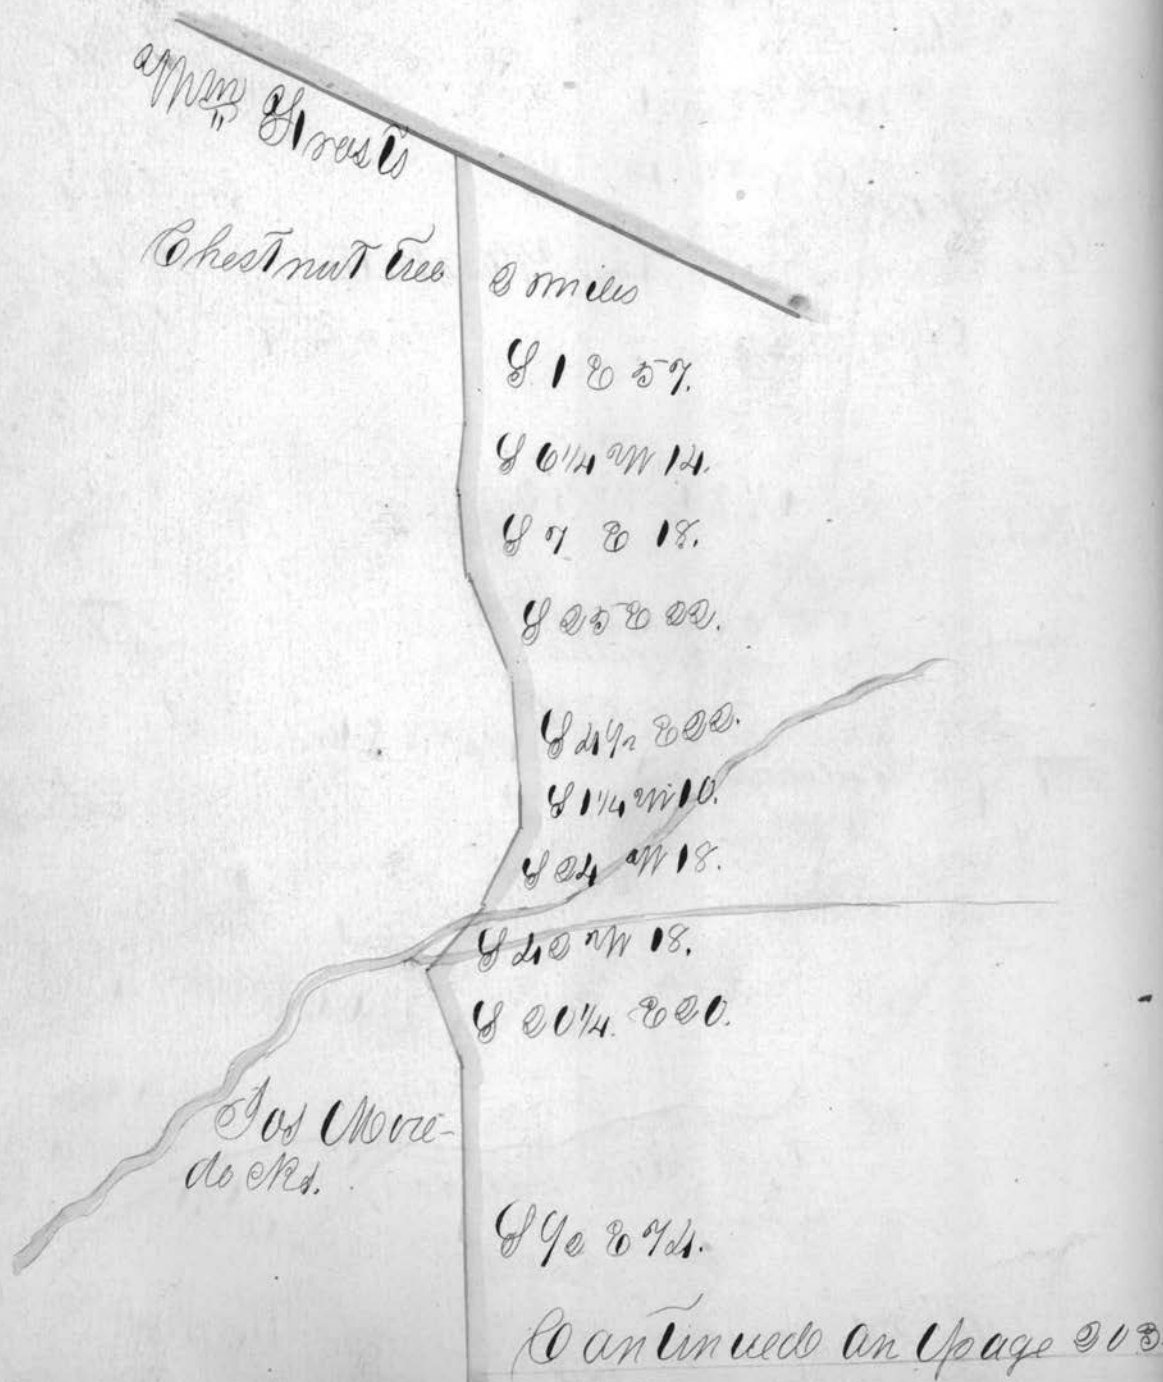 Wm Frosts
Chestnut tree
2 miles
S 1 E 57.
S 6 1/4 W 14.
S 7 E 18.
S 25 E 22.
S 4 1/2 E 22.
S 1 1/4 W 10.
S 24 W 18.
S 42 W 18.
S 20 1/4 E 20.
Jos More-
docks.
S 1/2 E 74.
Continued on page 203